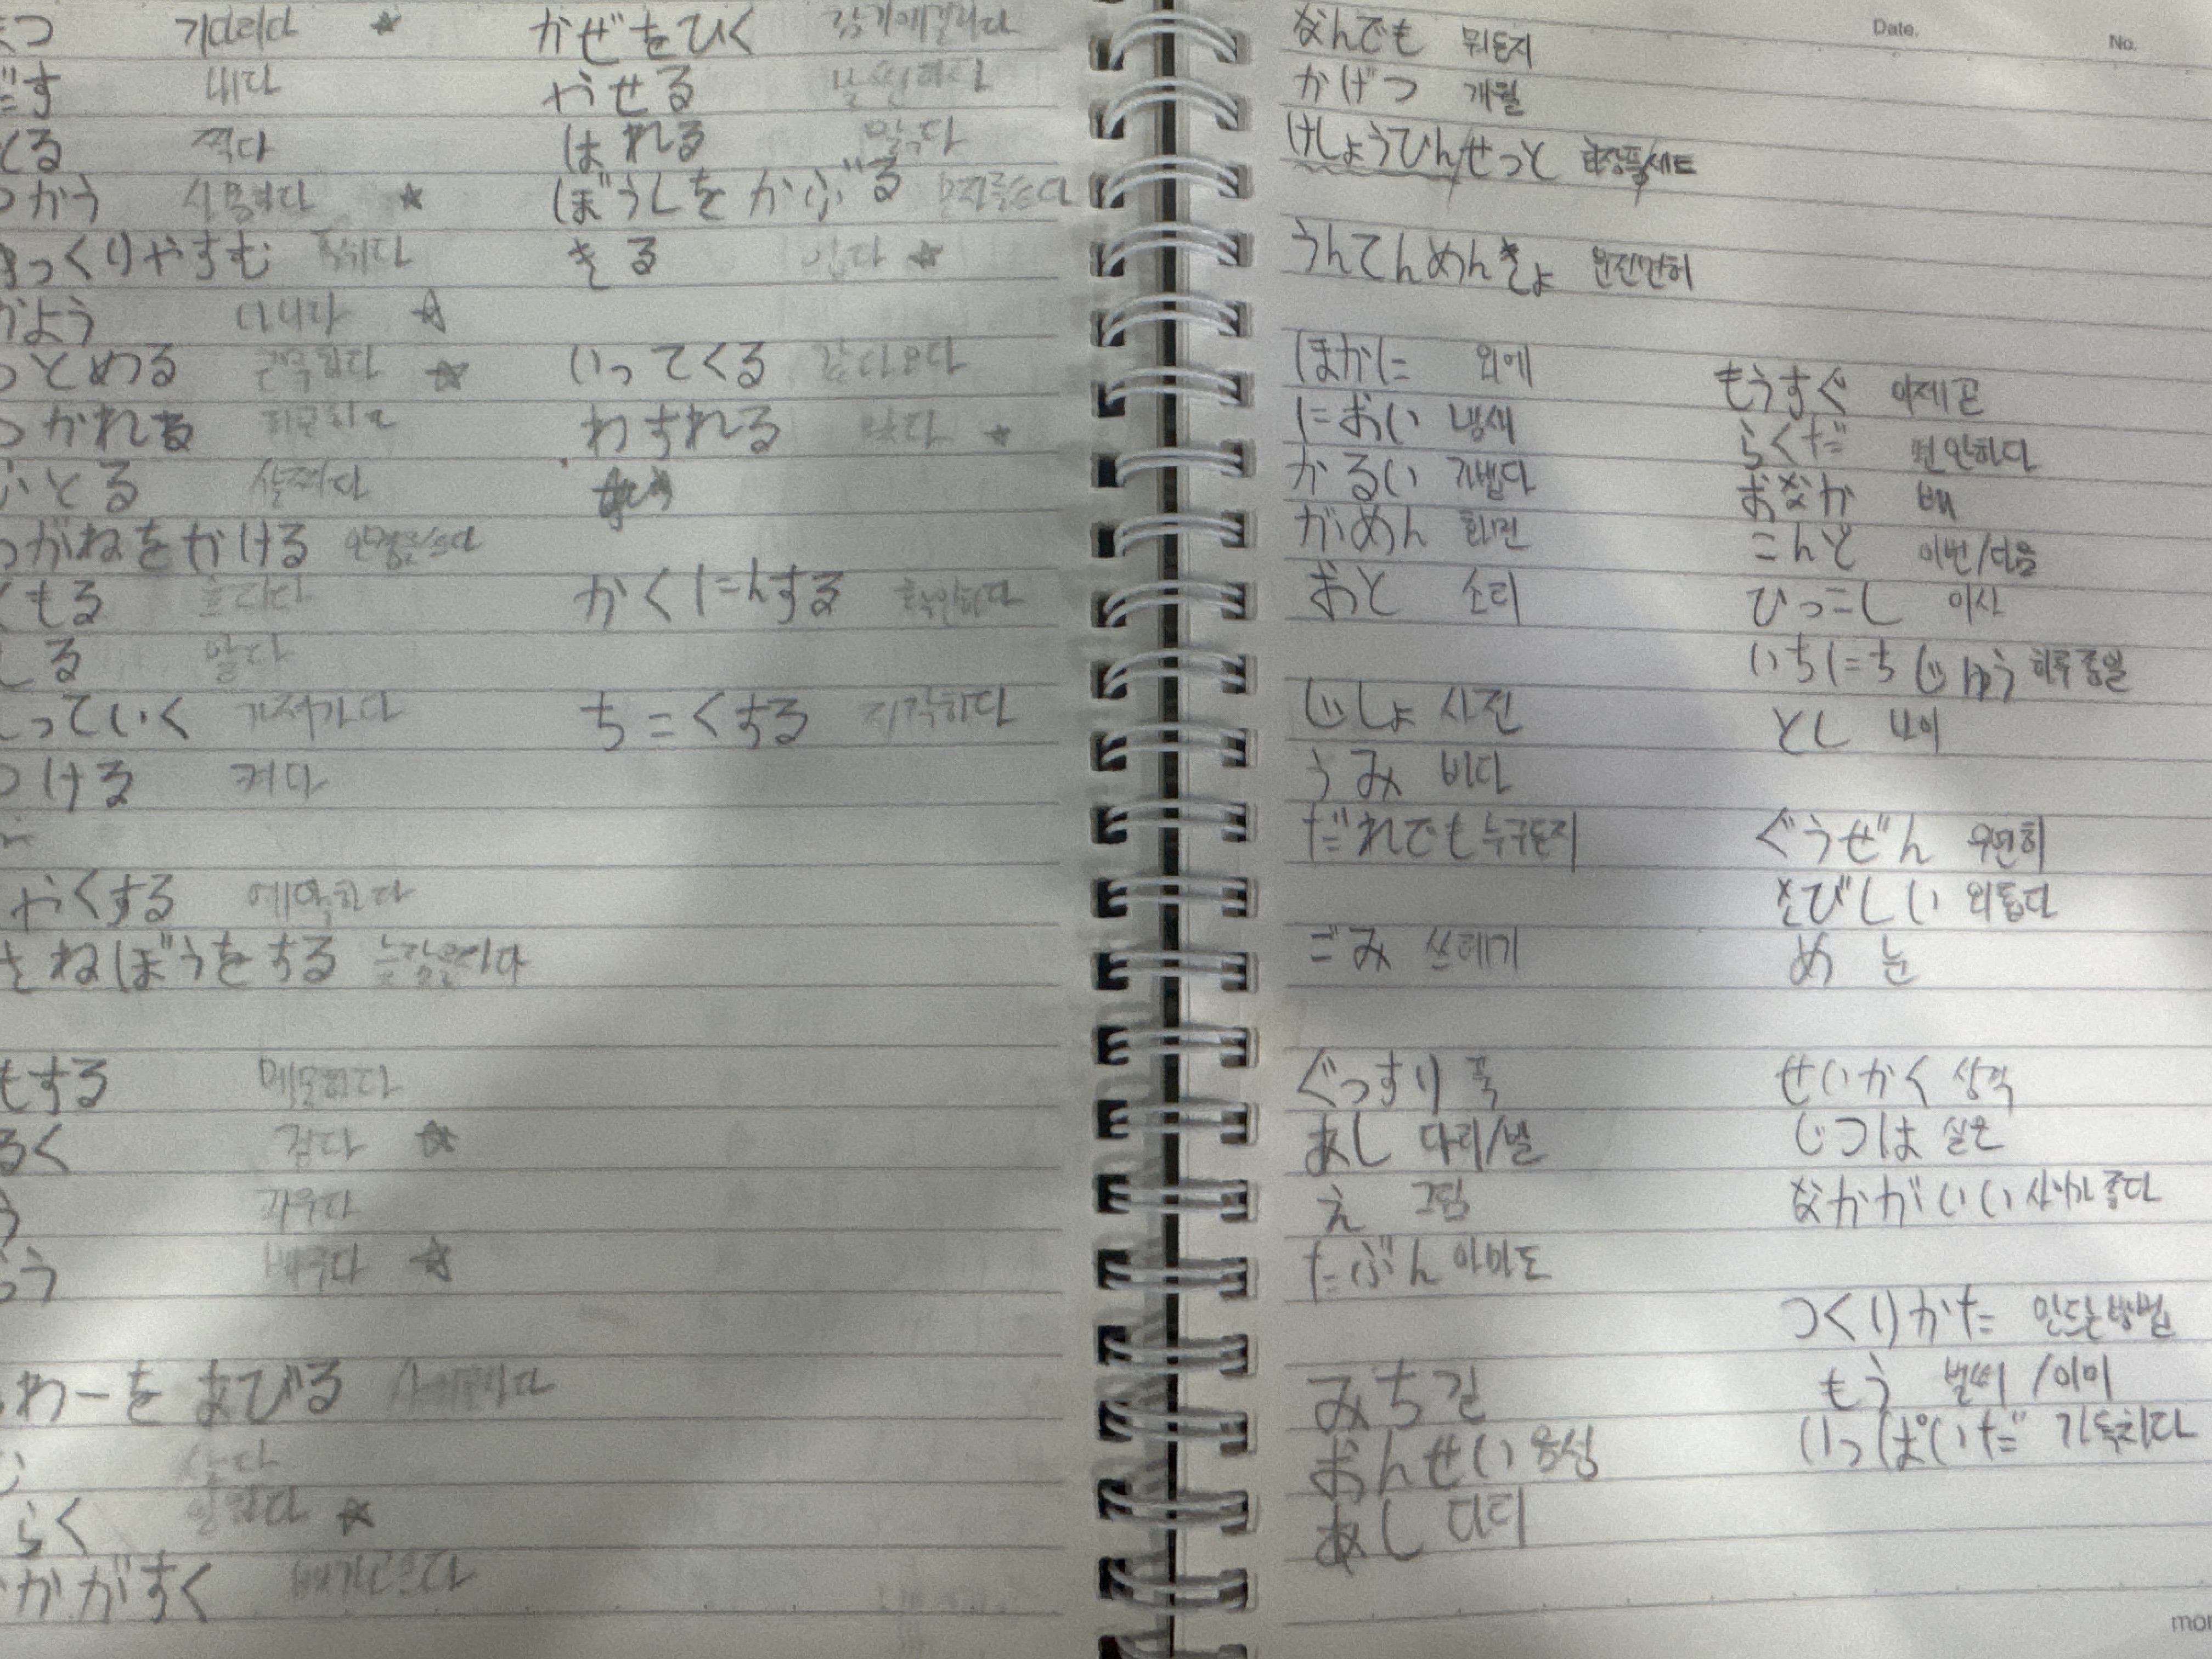 まつ 기다리다 ☆
だす 내다
とる 찍다
つかう 사용하다 ☆
ゆっくりやすむ 푹쉬다
かよう 다니다 ☆
つとめる 근무하다 ☆
つかれる 피곤하다
ふとる 살찌다
めがねをかける 안경을쓰다
くもる 흐리다
しる 알다
もっていく 가져가다
つける 켜다
やくする 예약하다
さねぼうをする 늦잠을자다
もする 메모하다
るく 걷다 ☆
う 피우다
らう 배우다 ☆
わーを あびる 샤워하다
む 살다
らく 일하다 ☆
かがすく 배가고프다
かぜをひく 감기에걸리다
やせる 날씬하다
はれる 맑다
ぼうしをかぶる 모자를쓰다
きる 입다 ☆
いってくる 갔다오다
わすれる 잊다 ☆
かくにんする 확인하다
ちこくする 지각하다
Date.
No.
なんでも 뭐든지
かげつ 개월
けしょうひん/せっと 화장품/세트
うんてんめんきょ 운전면허
ほかに 외에
におい 냄새
かるい 가볍다
がめん 화면
おと 소리
じしょ 사전
うみ 바다
だれでも 누구든지
ごみ 쓰레기
ぐっすり 푹
あし 다리/발
え 그림
たぶん 아마도
みち 길
おんせい 음성
あし 다리
もうすぐ 이제곧
らくだ 편안하다
おなか 배
こんど 이번/다음
ひっこし 이사
いちにちじゅう 하루종일
とし 나이
ぐうぜん 우연히
さびしい 외롭다
め 눈
せいかく 성격
じつは 실은
なかがいい 사이가 좋다
つくりかた 만드는방법
もう 벌써 /이미
いっぱいだ 가득차다